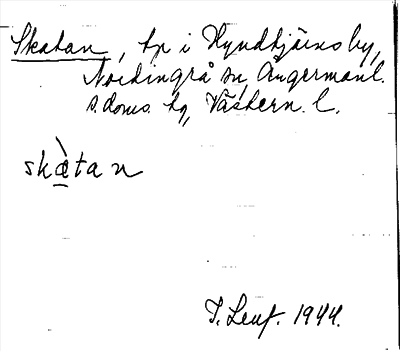 Skatan, tp i Hyndtjärns by,
Nordingrå sn, Ångermanl.
s. doms. hg, Västern. l.
skæ̀tan
T. Leuf. 1944.